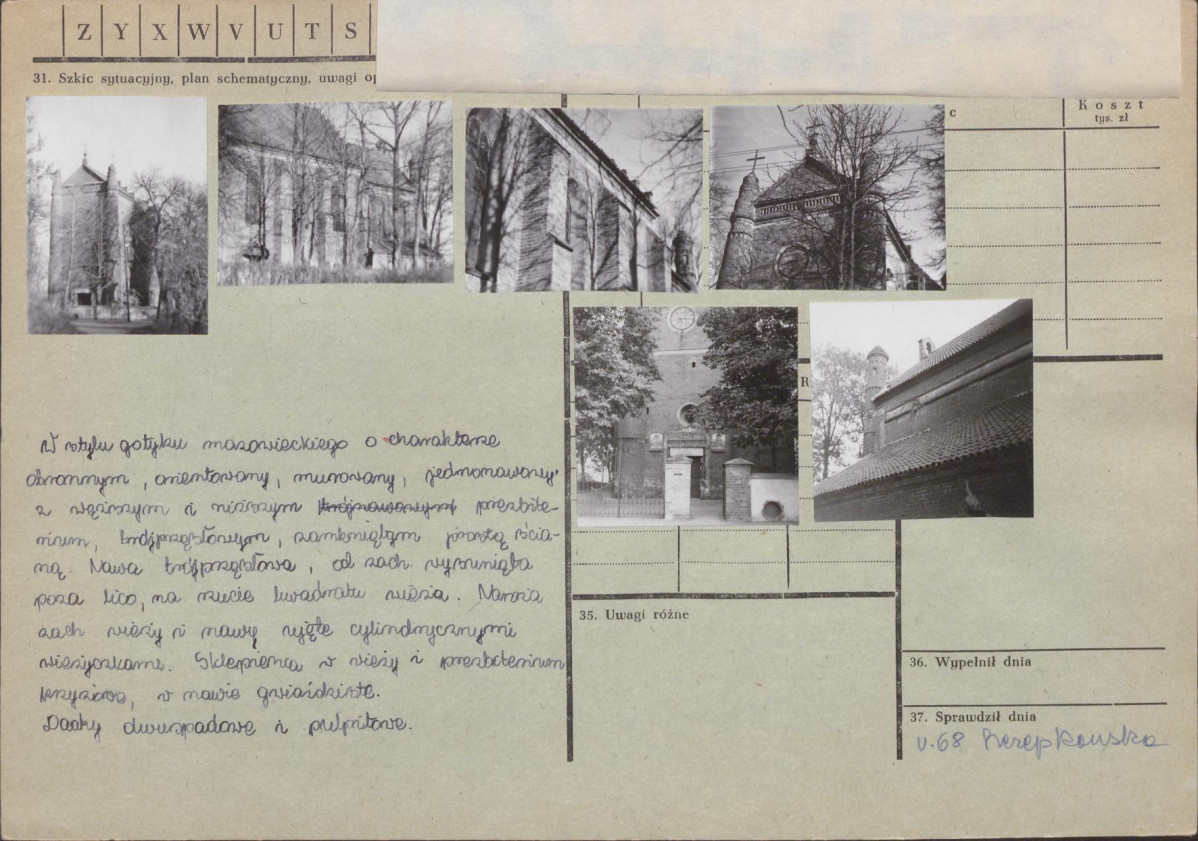 Z Y X W V U T S
31. Szkic sytuacyjny, plan schematyczny, uwagi op
c
Koszt
tys. zł
R
W stylu gotyku mazowieckiego o charakterze
obronnym, orientowany, murowany, jednonawowy
z węższym i niższym trójnawowym prezbite-
rium, trójprzęsłowym, zamkniętym prostą ścia-
ną. Nawa trójprzęsłowa, od zach wysunięta
poza lico, na rzucie kwadratu wieża. Naroża
zach wieży i nawy ujęte cylindrycznymi
wieżyczkami. Sklepienia w wieży i prezbiterium
krzyżowe, w nawie gwiaździste.
Dachy dwuspadowe i pulpitowe.
35. Uwagi różne
36. Wypełnił dnia
37. Sprawdził dnia
v.68